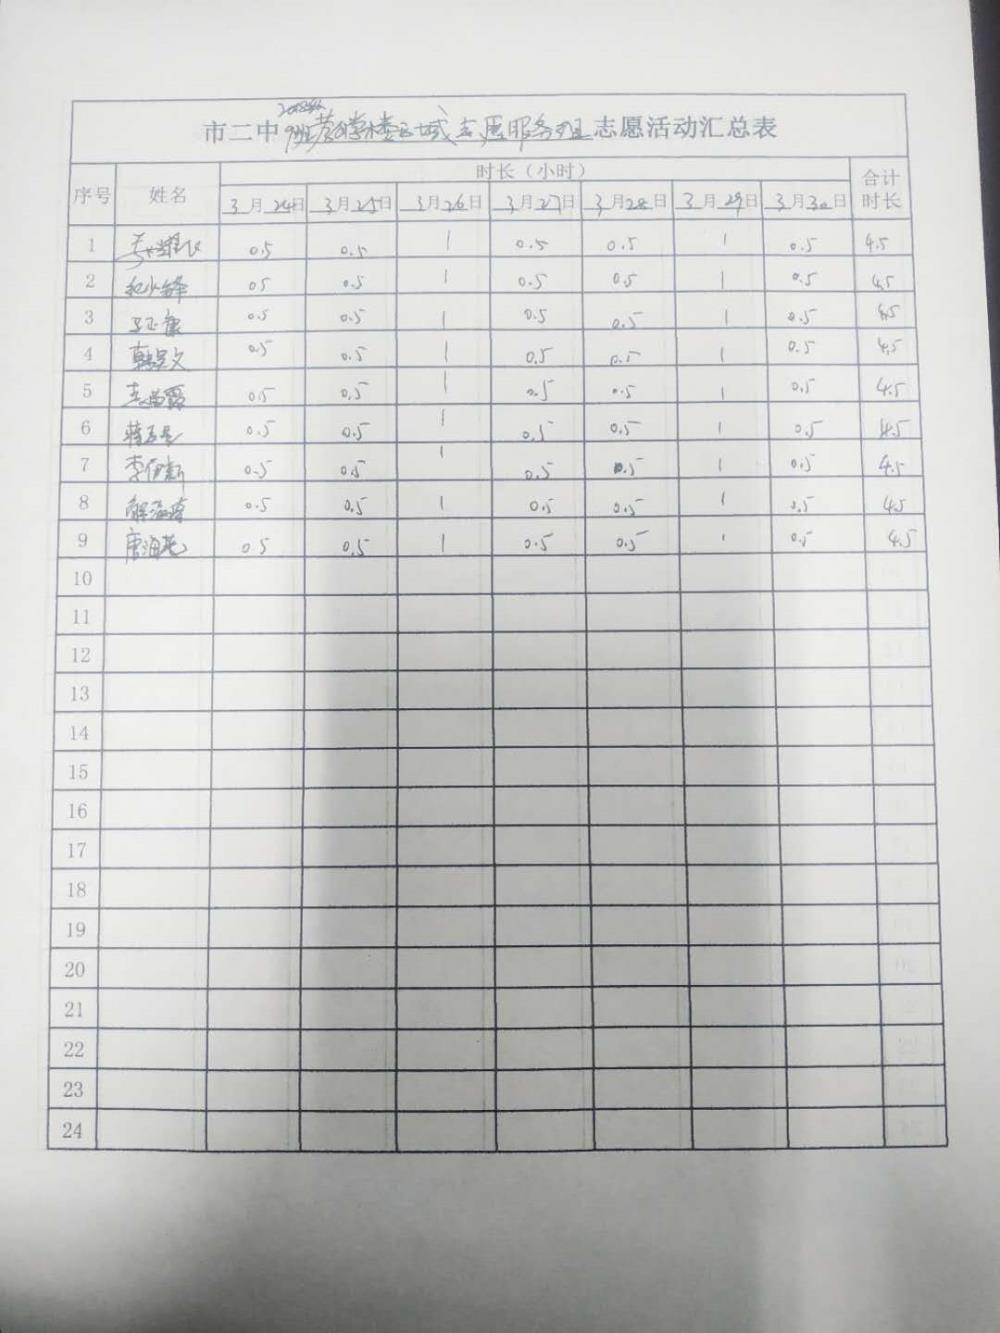 市二中 班 教学楼区域志愿服务班 志愿活动汇总表
序号 姓名 时长（小时） 合计时长
3月24日 3月25日 3月26日 3月27日 3月28日 3月29日 3月30日
1 0.5 0.5 1 0.5 0.5 1 0.5 4.5
2 纪少锋 0.5 0.5 1 0.5 0.5 1 0.5 4.5
3 0.5 0.5 1 0.5 0.5 1 0.5 4.5
4 0.5 0.5 1 0.5 0.5 1 0.5 4.5
5 0.5 0.5 1 0.5 0.5 1 0.5 4.5
6 0.5 0.5 1 0.5 0.5 1 0.5 4.5
7 0.5 0.5 1 0.5 0.5 1 0.5 4.5
8 0.5 0.5 1 0.5 0.5 1 0.5 4.5
9 0.5 0.5 1 0.5 0.5 1 0.5 4.5
10
11
12
13
14
15
16
17
18
19
20
21
22
23
24